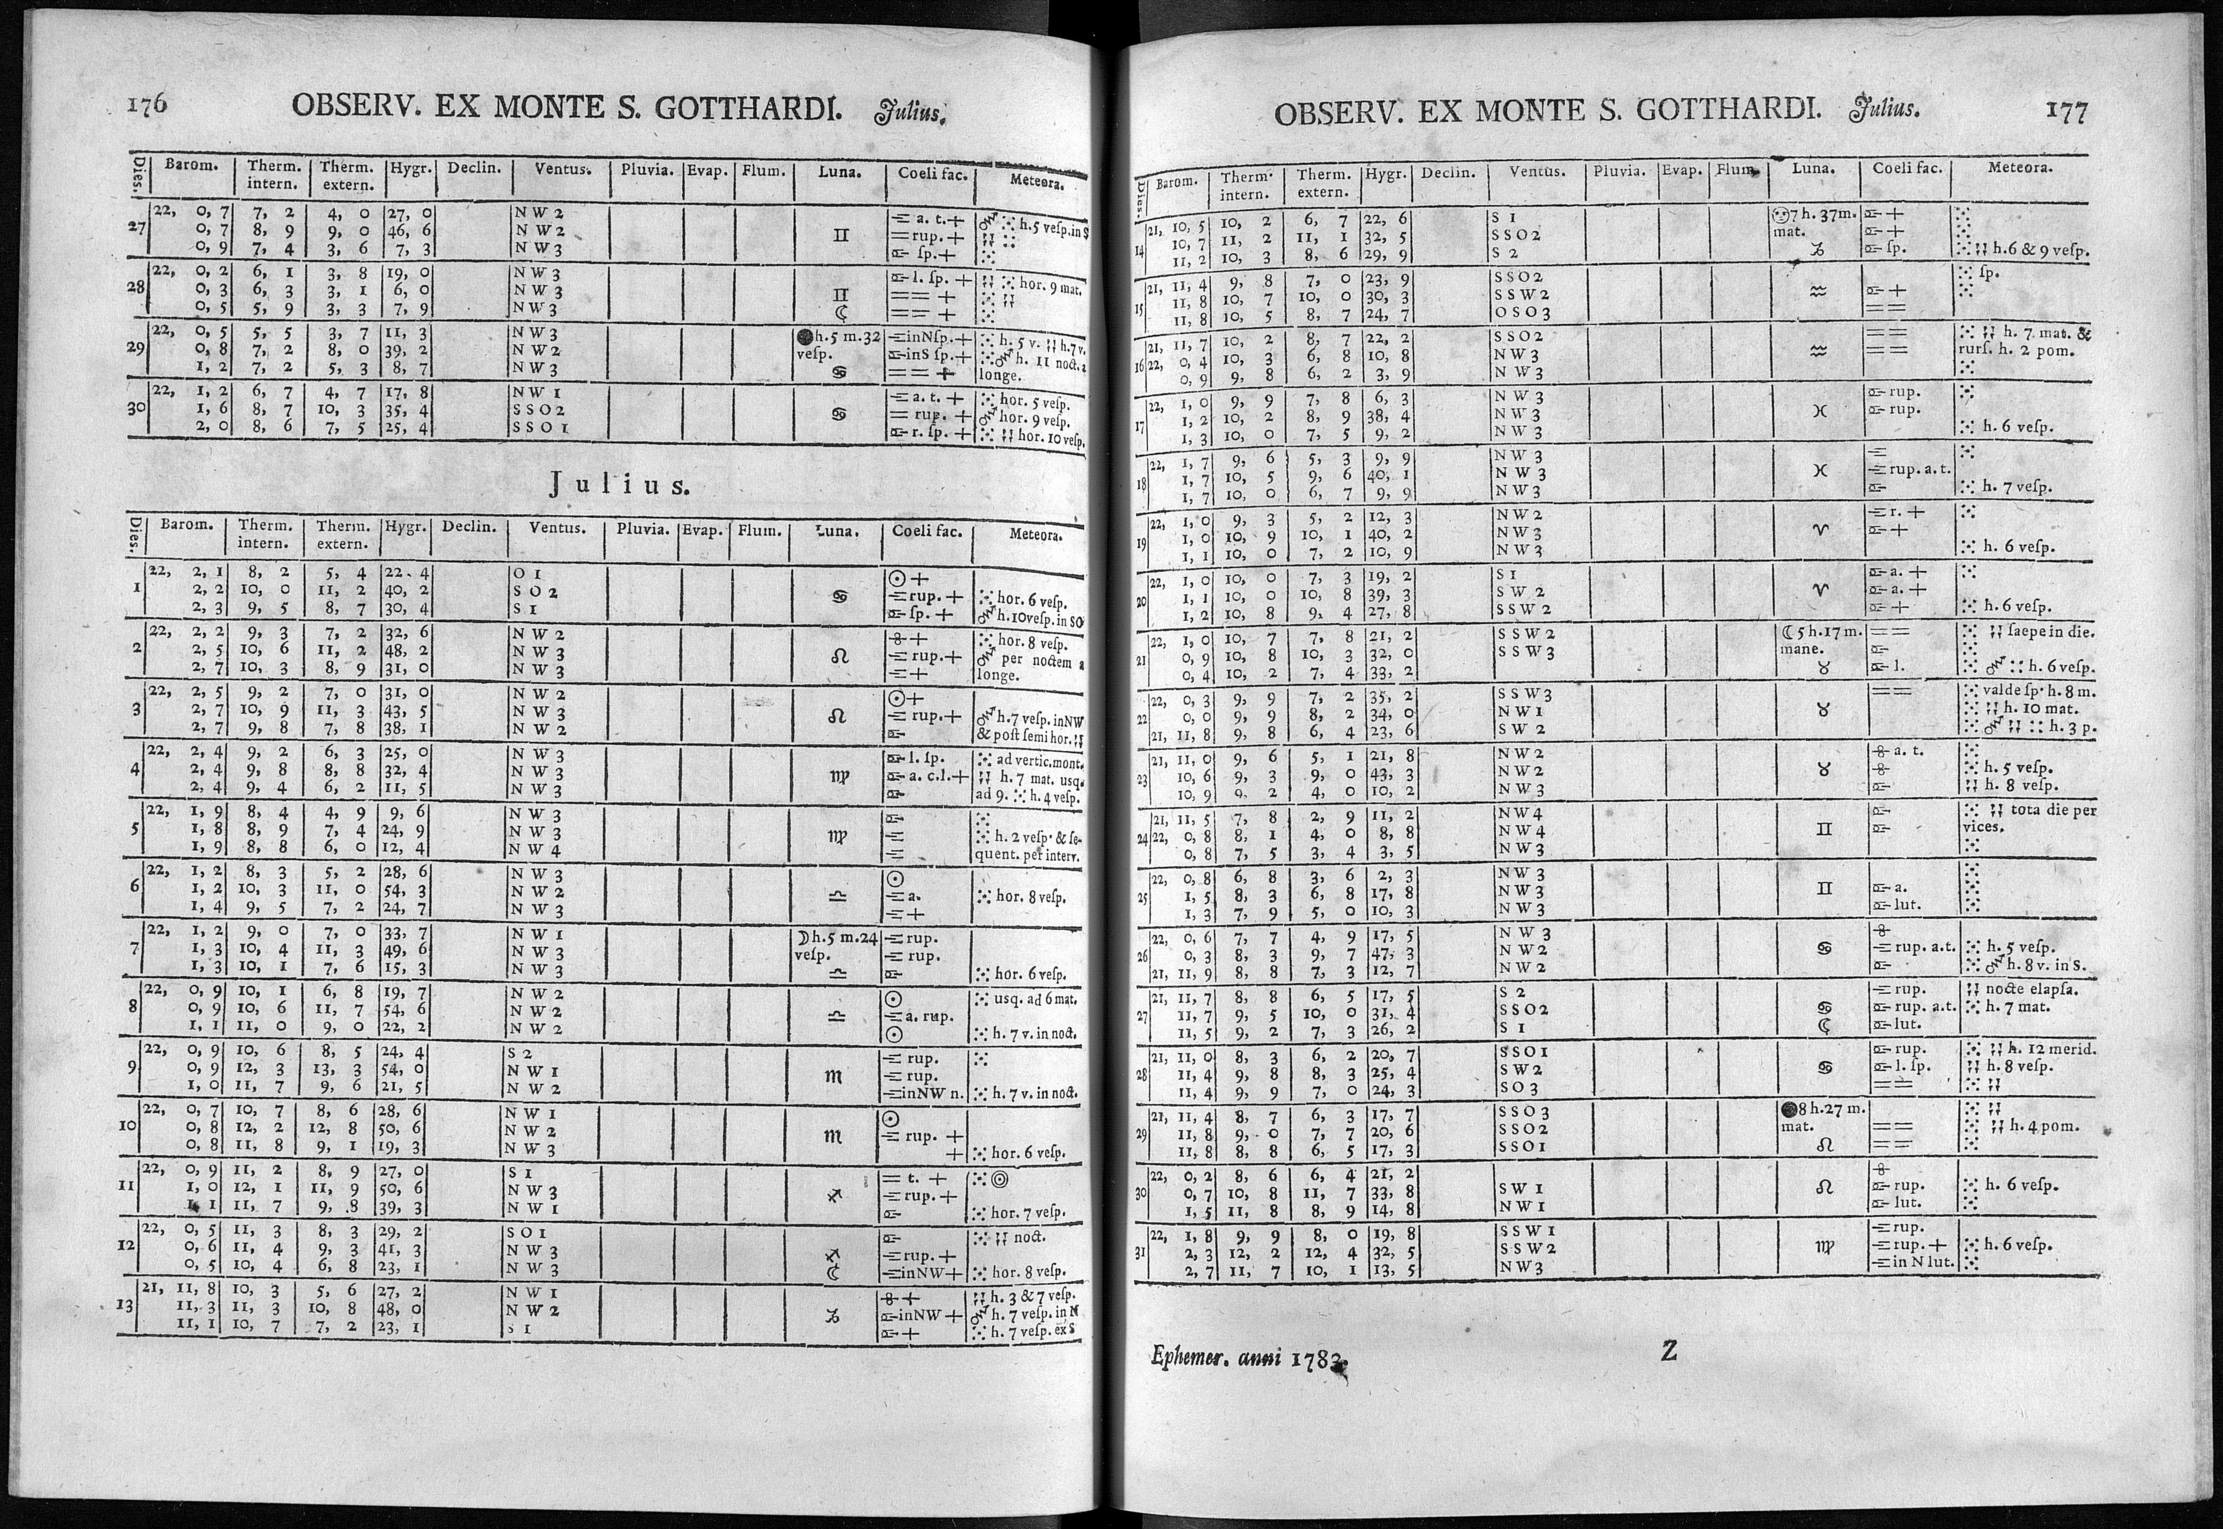 176 OBSERV. EX MONTE S. GOTTHARDI. Julius.
Dies. Barom. Therm. intern. Therm. extern. Hygr. Declin. Ventus. Pluvia. Evap. Flum. Luna. Coeli fac. Meteora.
27 22, 0, 7 7, 2 4, 0 27, 0 N W 2 a. t. + h. 5 veſp. in S
0, 7 8, 9 9, 0 46, 6 N W 2 ♊ = rup. +
0, 9 7, 4 3, 6 7, 3 N W 3 ſp. +
28 22, 0, 2 6, 1 3, 8 19, 0 N W 3 l. ſp. + hor. 9 mat.
0, 3 6, 3 3, 1 6, 0 N W 3 ♊ = = +
0, 5 5, 9 3, 3 7, 9 N W 3 ☾ = = +
29 22, 0, 5 5, 5 3, 7 11, 3 N W 3 ● h. 5 m. 32 in N ſp. + h. 5 v. h. 7 v.
0, 8 7, 2 8, 0 39, 2 N W 2 veſp. in S ſp. + h. 11 noct. a
1, 2 7, 2 5, 3 8, 7 N W 3 ♋ = = + longe.
30 22, 1, 2 6, 7 4, 7 17, 8 N W 1 a. t. + hor. 5 veſp.
1, 6 8, 7 10, 3 35, 4 S S O 2 ♋ = rup. + hor. 9 veſp.
2, 0 8, 6 7, 5 25, 4 S S O 1 r. ſp. + hor. 10 veſp.
Julius.
Dies. Barom. Therm. intern. Therm. extern. Hygr. Declin. Ventus. Pluvia. Evap. Flum. Luna. Coeli fac. Meteora.
1 22, 2, 1 8, 2 5, 4 22. 4 O 1 ☉ +
2, 2 10, 0 11, 2 40, 2 S O 2 ♋ rup. + hor. 6 veſp.
2, 3 9, 5 8, 7 30, 4 S 1 ſp. + h. 10 veſp. in SO
2 22, 2, 2 9, 3 7, 2 32, 6 N W 2 + hor. 8 veſp.
2, 5 10, 6 11, 2 48, 2 N W 3 ♌ rup. + per noctem a
2, 7 10, 3 8, 9 31, 0 N W 3 + longe.
3 22, 2, 5 9, 2 7, 0 31, 0 N W 2 ☉ +
2, 7 10, 9 11, 3 43, 5 N W 3 ♌ rup. + h. 7 veſp. in NW
2, 7 9, 8 7, 8 38, 1 N W 2 & poſt ſemi hor.
4 22, 2, 4 9, 2 6, 3 25, 0 N W 3 l. ſp. ad vertic. mont.
2, 4 9, 8 8, 8 32, 4 N W 3 ♍ a. c. l. + h. 7 mat. usq.
2, 4 9, 4 6, 2 11, 5 N W 3 ad 9. h. 4 veſp.
5 22, 1, 9 8, 4 4, 9 9, 6 N W 3
1, 8 8, 9 7, 4 24, 9 N W 3 ♍ h. 2 veſp. & ſe-
1, 9 8, 8 6, 0 12, 4 N W 4 quent. per interv.
6 22, 1, 2 8, 3 5, 2 28, 6 N W 3 ☉
1, 2 10, 3 11, 0 54, 3 N W 2 ♎ a. hor. 8 veſp.
1, 4 9, 5 7, 2 24, 7 N W 3 +
7 22, 1, 2 9, 0 7, 0 33, 7 N W 1 ☽ h. 5 m. 24 rup.
1, 3 10, 4 11, 3 49, 6 N W 3 veſp. rup.
1, 3 10, 1 7, 6 15, 3 N W 3 ♎ hor. 6 veſp.
8 22, 0, 9 10, 1 6, 8 19, 7 N W 2 ☉ usq. ad 6 mat.
0, 9 10, 6 11, 7 54, 6 N W 2 ♎ a. rup.
1, 1 11, 0 9, 0 22, 2 N W 2 ☉ h. 7 v. in noct.
9 22, 0, 9 10, 6 8, 5 24, 4 S 2 rup.
0, 9 12, 3 13, 3 54, 0 N W 1 ♏ rup.
1, 0 11, 7 9, 6 21, 5 N W 2 in NW n. h. 7 v. in noct.
10 22, 0, 7 10, 7 8, 6 28, 6 N W 1 ☉
0, 8 12, 2 12, 8 50, 6 N W 2 ♏ rup. +
0, 8 11, 8 9, 1 19, 3 N W 3 + hor. 6 veſp.
11 22, 0, 9 11, 2 8, 9 27, 0 S 1 = t. +
1, 0 12, 1 11, 9 50, 6 N W 3 ♐ rup. +
1, 1 11, 7 9, 8 39, 3 N W 1 hor. 7 veſp.
12 22, 0, 5 11, 3 8, 3 29, 2 S O 1 noct.
0, 6 11, 4 9, 3 41, 3 N W 3 ♐ rup. +
0, 5 10, 4 6, 8 23, 1 N W 3 ☾ in NW + hor. 8 veſp.
13 21, 11, 8 10, 3 5, 6 27, 2 N W 1 + h. 3 & 7 veſp.
11, 3 11, 3 10, 8 48, 0 N W 2 ♑ in NW + h. 7 veſp. in N
11, 1 10, 7 7, 2 23, 1 S 1 + h. 7 veſp. ex S
OBSERV. EX MONTE S. GOTTHARDI. Julius. 177
Dies. Barom. Therm. intern. Therm. extern. Hygr. Declin. Ventus. Pluvia. Evap. Flum. Luna. Coeli fac. Meteora.
14 21, 10, 5 10, 2 6, 7 22, 6 S 1 7 h. 37 m. +
10, 7 11, 2 11, 1 32, 5 S S O 2 mat. +
11, 2 10, 3 8, 6 29, 9 S 2 ♑ ſp. h. 6 & 9 veſp.
15 21, 11, 4 9, 8 7, 0 23, 9 S S O 2 ſp.
11, 8 10, 7 10, 0 30, 3 S S W 2 ♒ +
11, 8 10, 5 8, 7 24, 7 O S O 3 = =
16 21, 11, 7 10, 2 8, 7 22, 2 S S O 2 = = h. 7. mat. &
22, 0, 4 10, 3 6, 8 10, 8 N W 3 ♒ = = rurſ. h. 2 pom.
0, 9 9, 8 6, 2 3, 9 N W 3
17 22, 1, 0 9, 9 7, 8 6, 3 N W 3 rup.
1, 2 10, 2 8, 9 38, 4 N W 3 ♓ rup.
1, 3 10, 0 7, 5 9, 2 N W 3 h. 6 veſp.
18 22, 1, 7 9, 6 5, 3 9, 9 N W 3
1, 7 10, 5 9, 6 40, 1 N W 3 ♓ rup. a. t.
1, 7 10, 0 6, 7 9, 9 N W 3 h. 7 veſp.
19 22, 1, 0 9, 3 5, 2 12, 3 N W 2 r. +
1, 0 10, 9 10, 1 40, 2 N W 3 ♈ +
1, 1 10, 0 7, 2 10, 9 N W 3 h. 6 veſp.
20 22, 1, 0 10, 0 7, 3 19, 2 S 1 a. +
1, 1 10, 0 10, 8 39, 3 S W 2 ♈ a. +
1, 2 10, 8 9, 4 27, 8 S S W 2 + h. 6 veſp.
21 22, 1, 0 10, 7 7, 8 21, 2 S S W 2 ☾ 5 h. 17 m. = = ſaepe in die.
0, 9 10, 8 10, 3 32, 0 S S W 3 mane.
0, 4 10, 2 7, 4 33, 2 ♉ l. h. 6 veſp.
22 22, 0, 3 9, 9 7, 2 35, 2 S S W 3 = = valde ſp. h. 8 m.
0, 0 9, 9 8, 2 34, 0 N W 1 ♉ h. 10 mat.
21, 11, 8 9, 8 6, 4 23, 6 S W 2 h. 3 p.
23 21, 11, 0 9, 6 5, 1 21, 8 N W 2 a. t.
10, 6 9, 3 9, 0 43, 3 N W 2 ♉ h. 5 veſp.
10, 9 9, 2 4, 0 10, 2 N W 3 h. 8 veſp.
24 21, 11, 5 7, 8 2, 9 11, 2 N W 4 tota die per
22, 0, 8 8, 1 4, 0 8, 8 N W 4 ♊ vices.
0, 8 7, 5 3, 4 3, 5 N W 3
25 22, 0, 8 6, 8 3, 6 2, 3 N W 3
1, 5 8, 3 6, 8 17, 8 N W 3 ♊ a.
1, 3 7, 9 5, 0 10, 3 N W 3 lut.
26 22, 0, 6 7, 7 4, 9 17, 5 N W 3
0, 3 8, 3 9, 7 47, 3 N W 2 ♋ rup. a. t. h. 5 veſp.
21, 11, 9 8, 8 7, 3 12, 7 N W 2 h. 8 v. in S.
27 21, 11, 7 8, 8 6, 5 17, 5 S 2 rup. nocte elapſa.
11, 7 9, 5 10, 0 31, 4 S S O 2 ♋ rup. a. t. h. 7 mat.
11, 5 9, 2 7, 3 26, 2 S 1 ☾ lut.
28 21, 11, 0 8, 3 6, 2 20, 7 S S O 1 rup. h. 12 merid.
11, 4 9, 8 8, 3 25, 4 S W 2 ♋ l. ſp. h. 8 veſp.
11, 4 9, 9 7, 0 24, 3 S O 3 = =
29 21, 11, 4 8, 7 6, 3 17, 7 S S O 3 ● 8 h. 27 m.
11, 8 9, 0 7, 7 20, 6 S S O 2 mat. = = h. 4 pom.
11, 8 8, 8 6, 5 17, 3 S S O 1 ♌ = =
30 22, 0, 2 8, 6 6, 4 21, 2
0, 7 10, 8 11, 7 33, 8 S W 1 ♌ rup. h. 6 veſp.
1, 5 11, 8 8, 9 14, 8 N W 1 lut.
31 22, 1, 8 9, 9 8, 0 19, 8 S S W 1 rup.
2, 3 12, 2 12, 4 32, 5 S S W 2 ♍ rup. + h. 6 veſp.
2, 7 11, 7 10, 1 13, 5 N W 3 in N lut.
Ephemer. anni 1783. Z